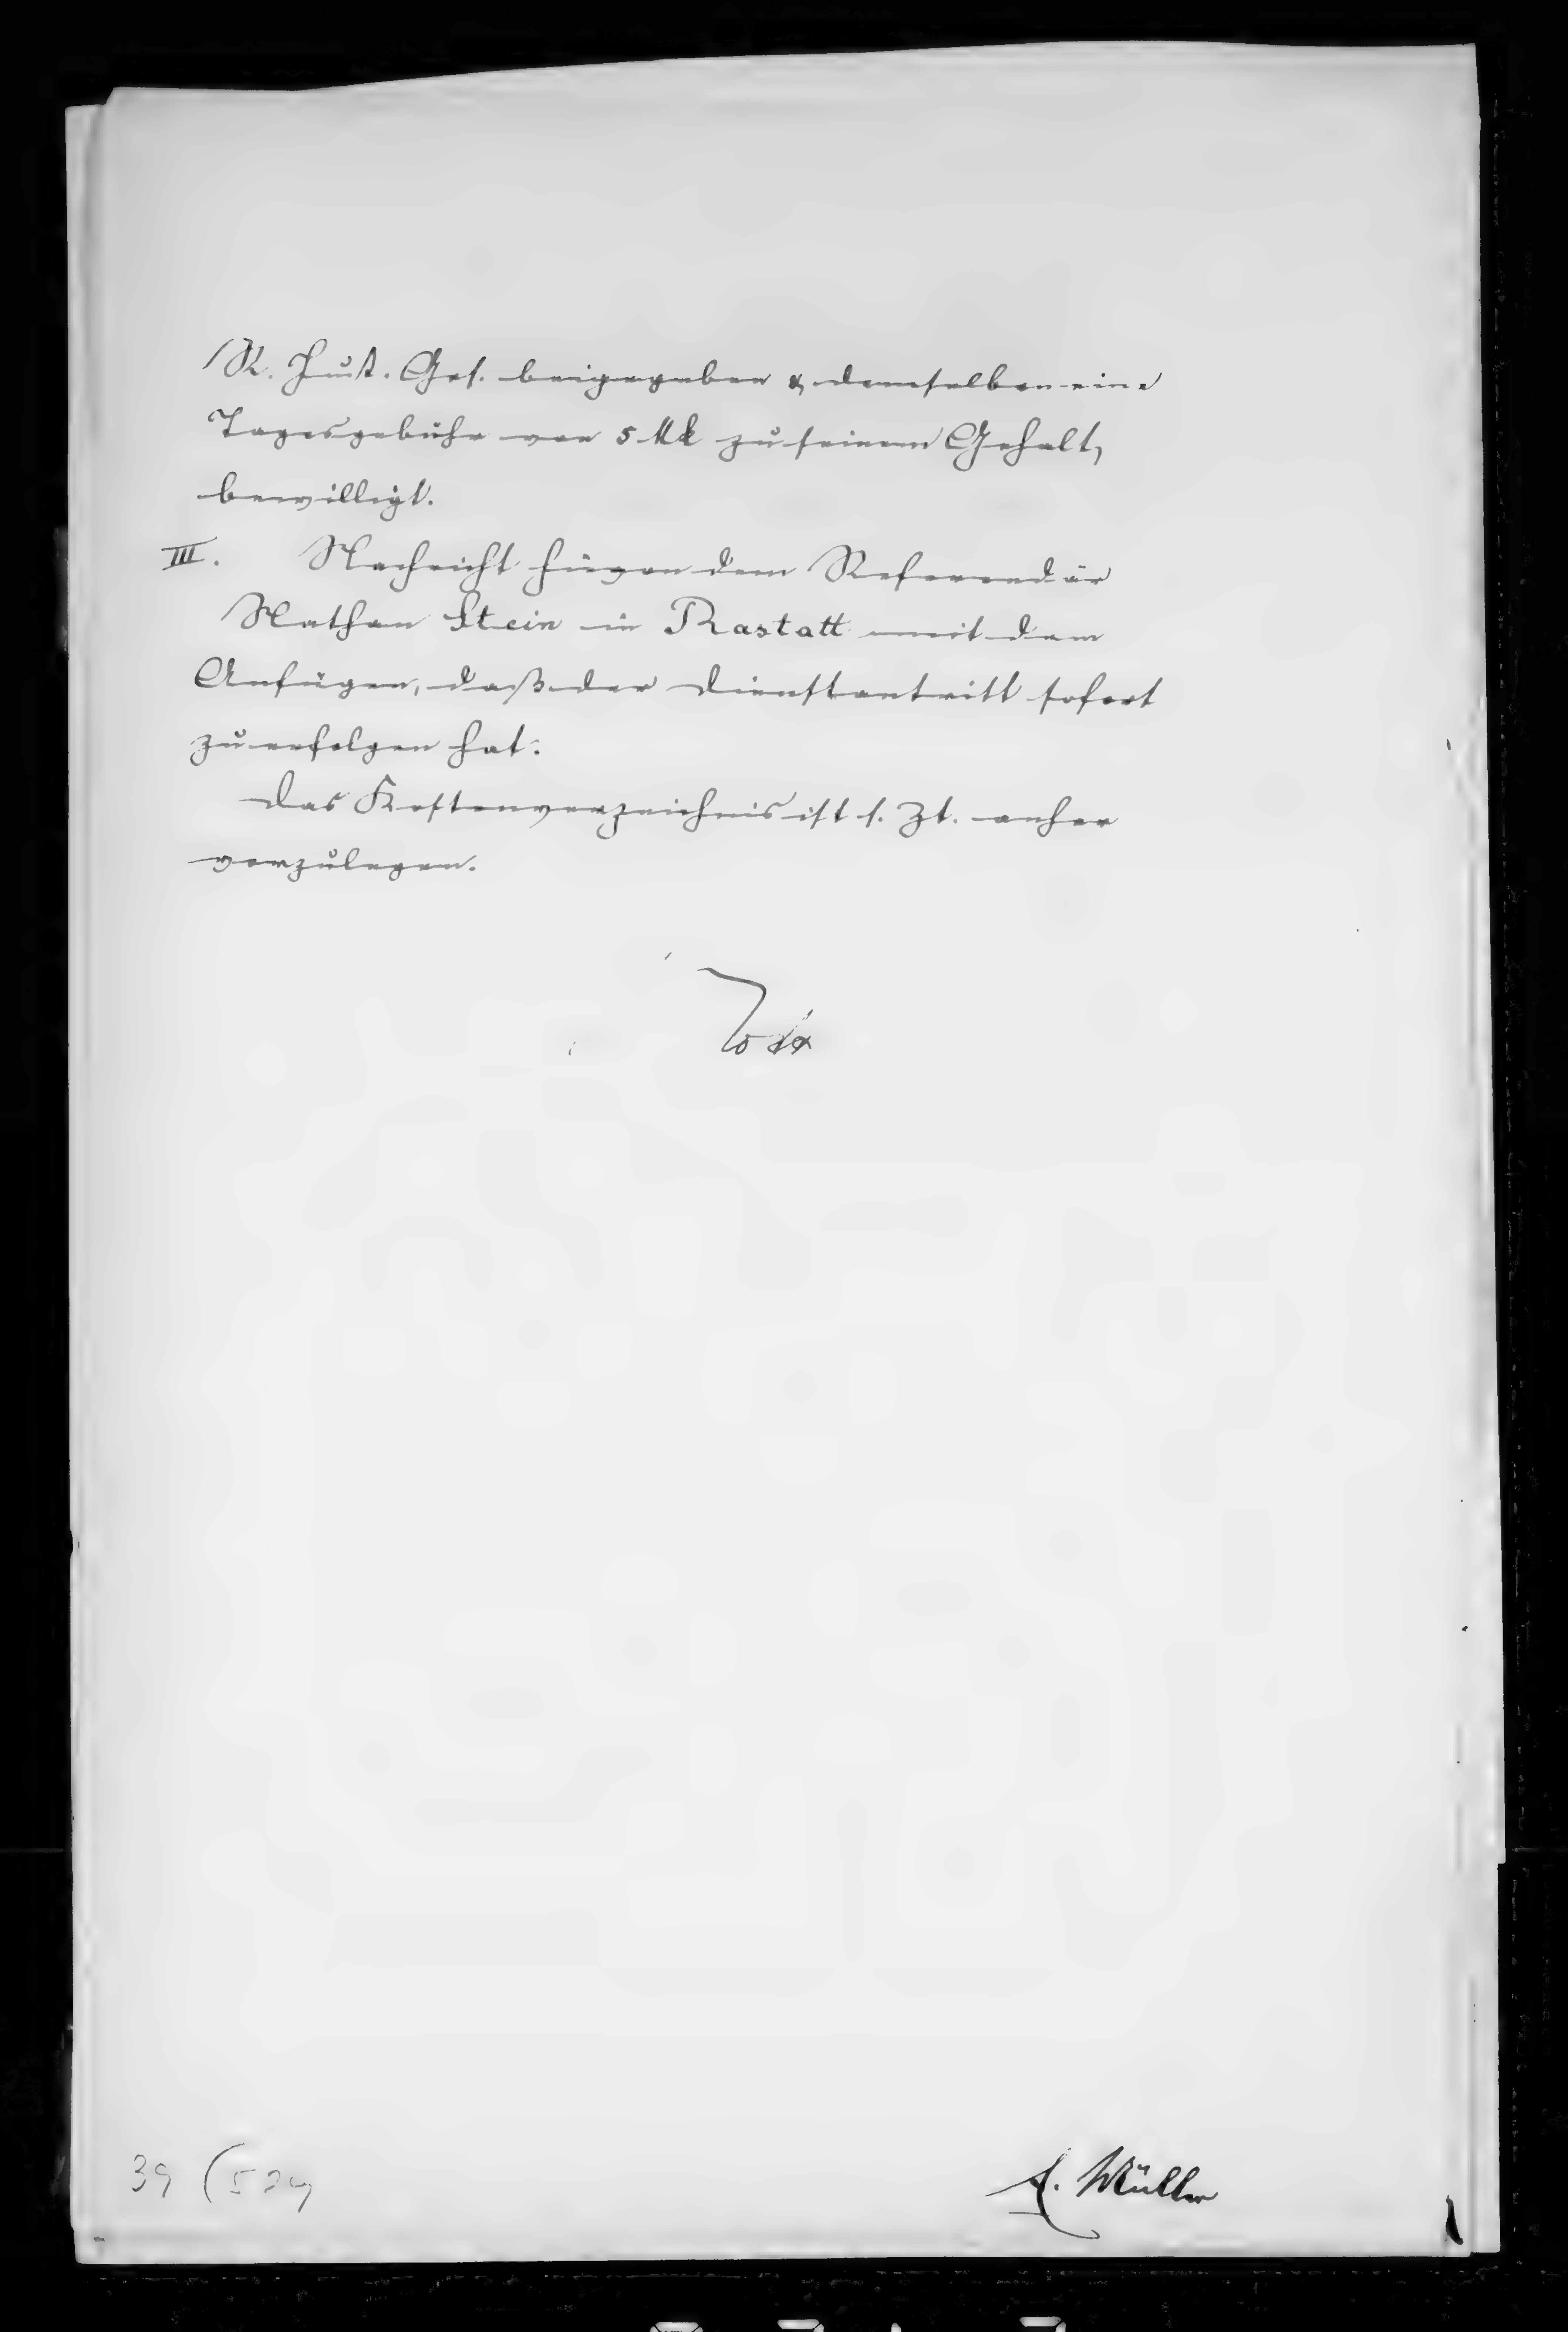 R. Just. Ges. beigegeben & demselben eine
Tagesgebühr von 5 Mk zu seinem Gehalt,
bewilligt.
III. Nachricht hievon dem Referendär
Nathan Stein in Rastatt mit dem
Anfügen, daß der Dienstantritt sofort
zu erfolgen hat.
Das Kostenverzeichnis ist s. Zt. anher
vorzulegen.
39 (529
A. Müller